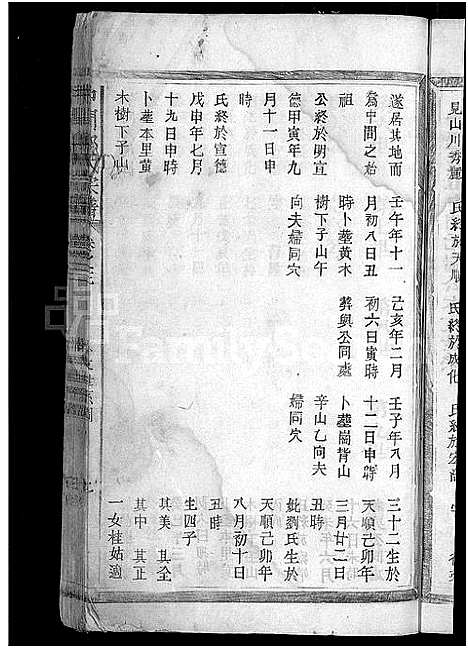 見山川秀麗
氏終於天順
氏終於成化
遂居其地而
爲中間之始
祖
公終於明宣
德甲寅年九
月十一日申
時
氏終於宣德
戊申年七月
十九日申時
卜塟本里黄
木樹下子山
壬午年十一
月初八日丑
時卜塟黄木
樹下子山午
向夫婦同穴
己亥年二月
初六日寅時
葬與公同處
壬子年八月
十二日申時
卜塟崗背山
辛山乙向夫
婦同穴
三十二生於
天順己卯年
三月廿二日
丑時
妣劉氏生於
天順己卯年
八月初十日
丑時
生四子
其美 其全
其中 其正
一女桂姑適